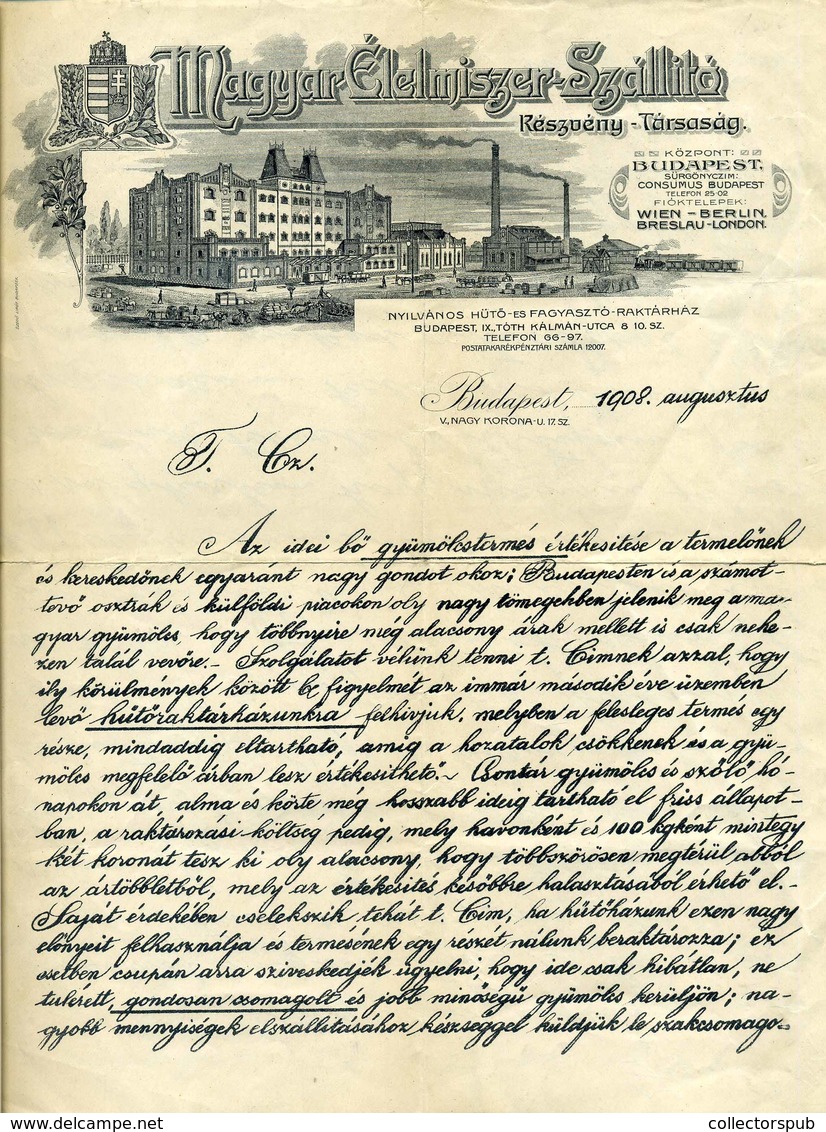 Magyar Élelmiszer-Szállító
Részvény-Társaság.
KÖZPONT:
BUDAPEST.
SÜRGÖNYCZIM:
CONSUMUS BUDAPEST
TELEFON 25-02
FIÓKTELEPEK:
WIEN - BERLIN.
BRESLAU - LONDON.
NYILVÁNOS HŰTŐ- ES FAGYASZTÓ-RAKTÁRHÁZ
BUDAPEST, IX., TÓTH KÁLMÁN-UTCA 8 10. SZ.
TELEFON 66-97.
POSTATAKARÉKPÉNZTÁRI SZÁMLA 12007.
Budapest, 1908. augusztus
V., NAGY KORONA-U. 17. SZ.
T. Cz.
Az idei bő gyümölcstermés értékesitése a termelőnek
és kereskedőnek egyaránt nagy gondot okoz; Budapesten és a számot-
tevő osztrák és külföldi piacokon oly nagy tömegekben jelenik meg a ma-
gyar gyümölcs, hogy többnyire még alacsony árak mellett is csak nehe-
zen talál vevőre.- Szolgálatot vélünk tenni t. Cimnek azzal, hogy
ily körülmények között b. figyelmét az immár második éve üzemben
levő hűtőraktárházunkra felhivjuk, melyben a felesleges termés egy
része, mindaddig eltartható, amig a hozatalok csökkenek és a gyü-
mölcs megfelelő árban lesz értékesithető.- Csontár gyümölcs és szőlő hó-
napokon át, alma és körte még hosszabb ideig tartható el friss állapot-
ban, a raktározási költség pedig, mely havonként és 100 kgként mintegy
két koronát tesz ki oly alacsony, hogy többszörösen megtérül abból
az ártöbbletből, mely az értékesités későbbre halasztásából érhető el.-
Saját érdekében cselekszik tehát t. Cim, ha hűtőházunk ezen nagy
előnyeit felhasználja és termésének egy részét nálunk beraktározza; ez
esetben csupán arra sziveskedjék ügyelni, hogy ide csak hibátlan, ne
tulérett, gondosan csomagolt és jobb minőségű gyümölcs kerüljön; na-
gyobb mennyiségek elszállitásához készséggel küldjük le szakcsomago-
delcampe.net
collectorspub